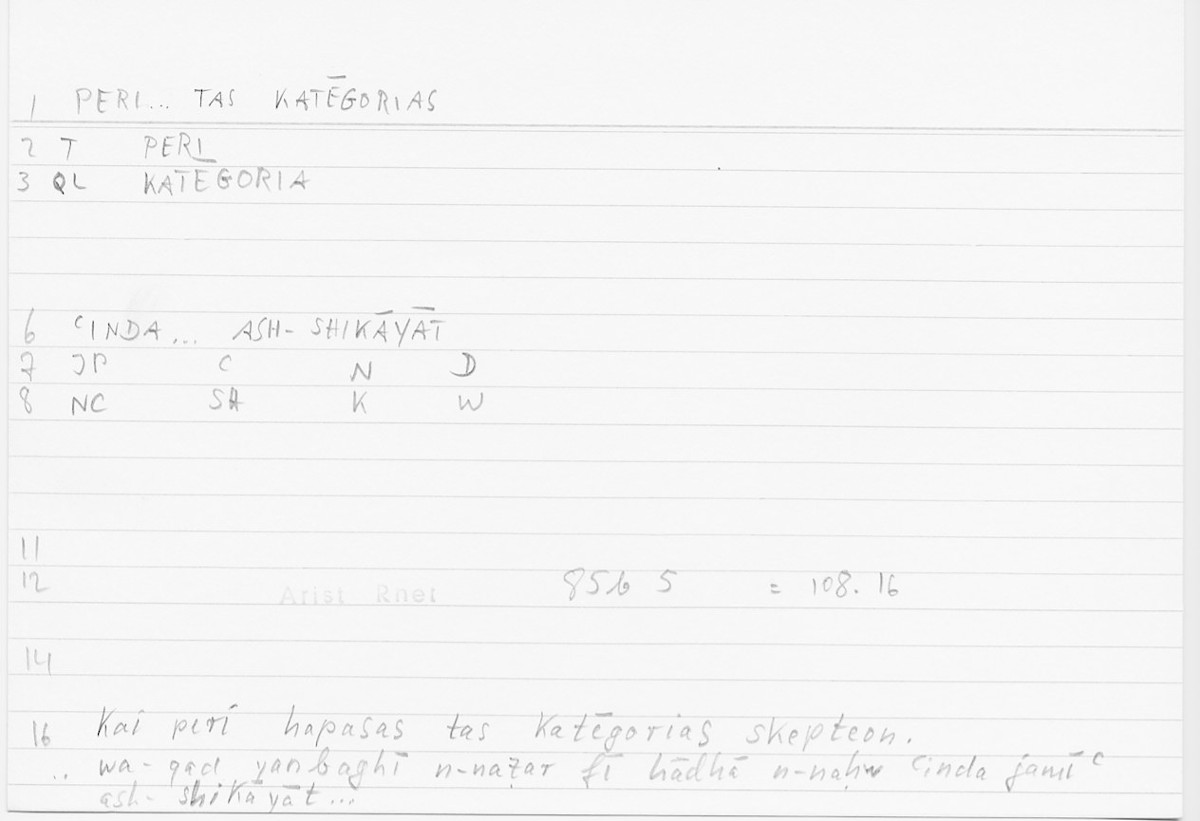 1 PERI... TAS KATĒGORIAS
2 T PERI
3 QL KATEGORIA
6 ᶜINDA... ASH-SHIKĀYĀT
7 JP C N D
8 NC SH K W
11
12 Arist Rhet 85b 5 = 108.16
14
16 Kai peri hapasas tas Katēgorias skepteon.
.. wa-qad yanbaghī n-naẓar fī hādhā n-naḥw ᶜinda jamīᶜ
ash-shikāyāt...